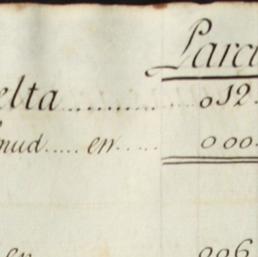 Parci
elta.............. 012
mud..... en..... 000
en 006